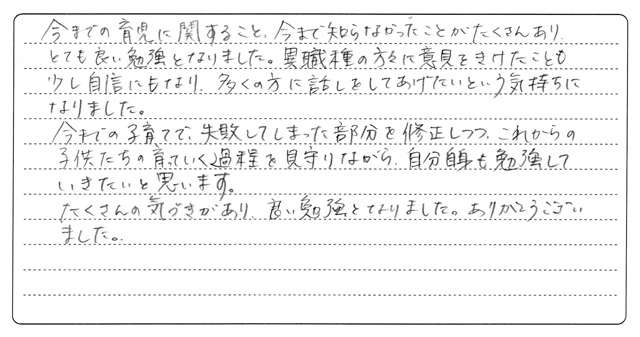 今までの育児に関すること、今まで知らなかったことがたくさんあり、
とても良い勉強となりました。異職種の方々に意見をきけたことも
少し自信にもなり、多くの方に話しをしてあげたいという気持ちに
なりました。
今までの子育てで、失敗してしまった部分を修正しつつ、これからの
子供たちの育っていく過程を見守りながら、自分自身も勉強して
いきたいと思います。
たくさんの気づきがあり、良い勉強となりました。ありがとうござい
ました。